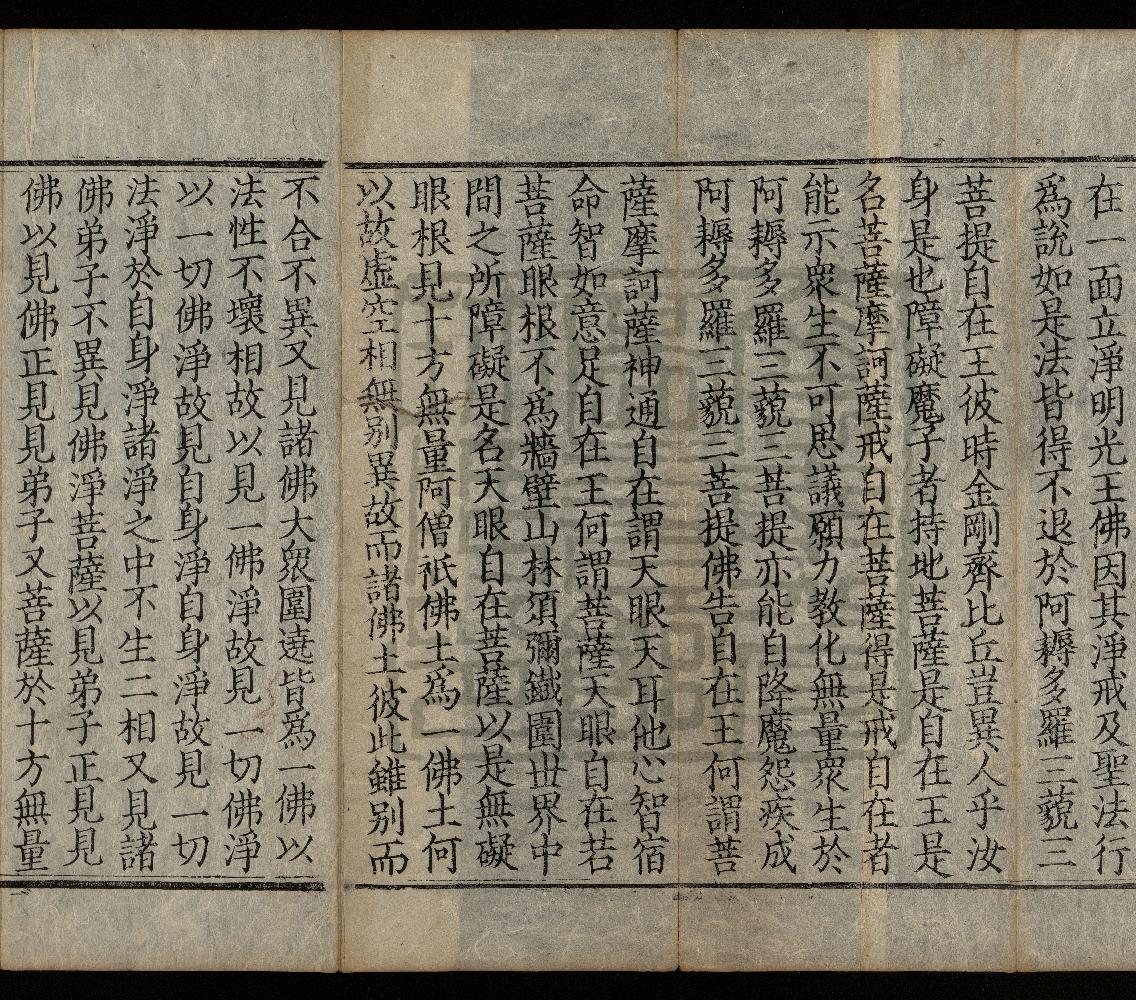 在一面立淨明光王佛因其淨戒及聖法行
爲說如是法皆得不退於阿耨多羅三藐三
菩提自在王彼時金剛齊比丘豈異人乎汝
身是也障礙魔子者持地菩薩是自在王是
名菩薩摩訶薩戒自在菩薩得是戒自在者
能示衆生不可思議願力教化無量衆生於
阿耨多羅三藐三菩提亦能自降魔怨疾成
阿耨多羅三藐三菩提佛告自在王何謂菩
薩摩訶薩神通自在謂天眼天耳他心智宿
命智如意足自在王何謂菩薩天眼自在若
菩薩眼根不爲牆壁山林須彌鐵圍世界中
間之所障礙是名天眼自在菩薩以是無礙
眼根見十方無量阿僧祇佛土爲一佛土何
以故虛空相無别異故而諸佛土彼此雖别而
不合不異又見諸佛大衆圍遶皆爲一佛以
法性不壞相故以見一佛淨故見一切佛淨
以一切佛淨故見自身淨自身淨故見一切
法淨於自身淨諸淨之中不生二相又見諸
佛弟子不異見佛淨菩薩以見弟子正見見
佛以見佛正見見弟子又菩薩於十方無量